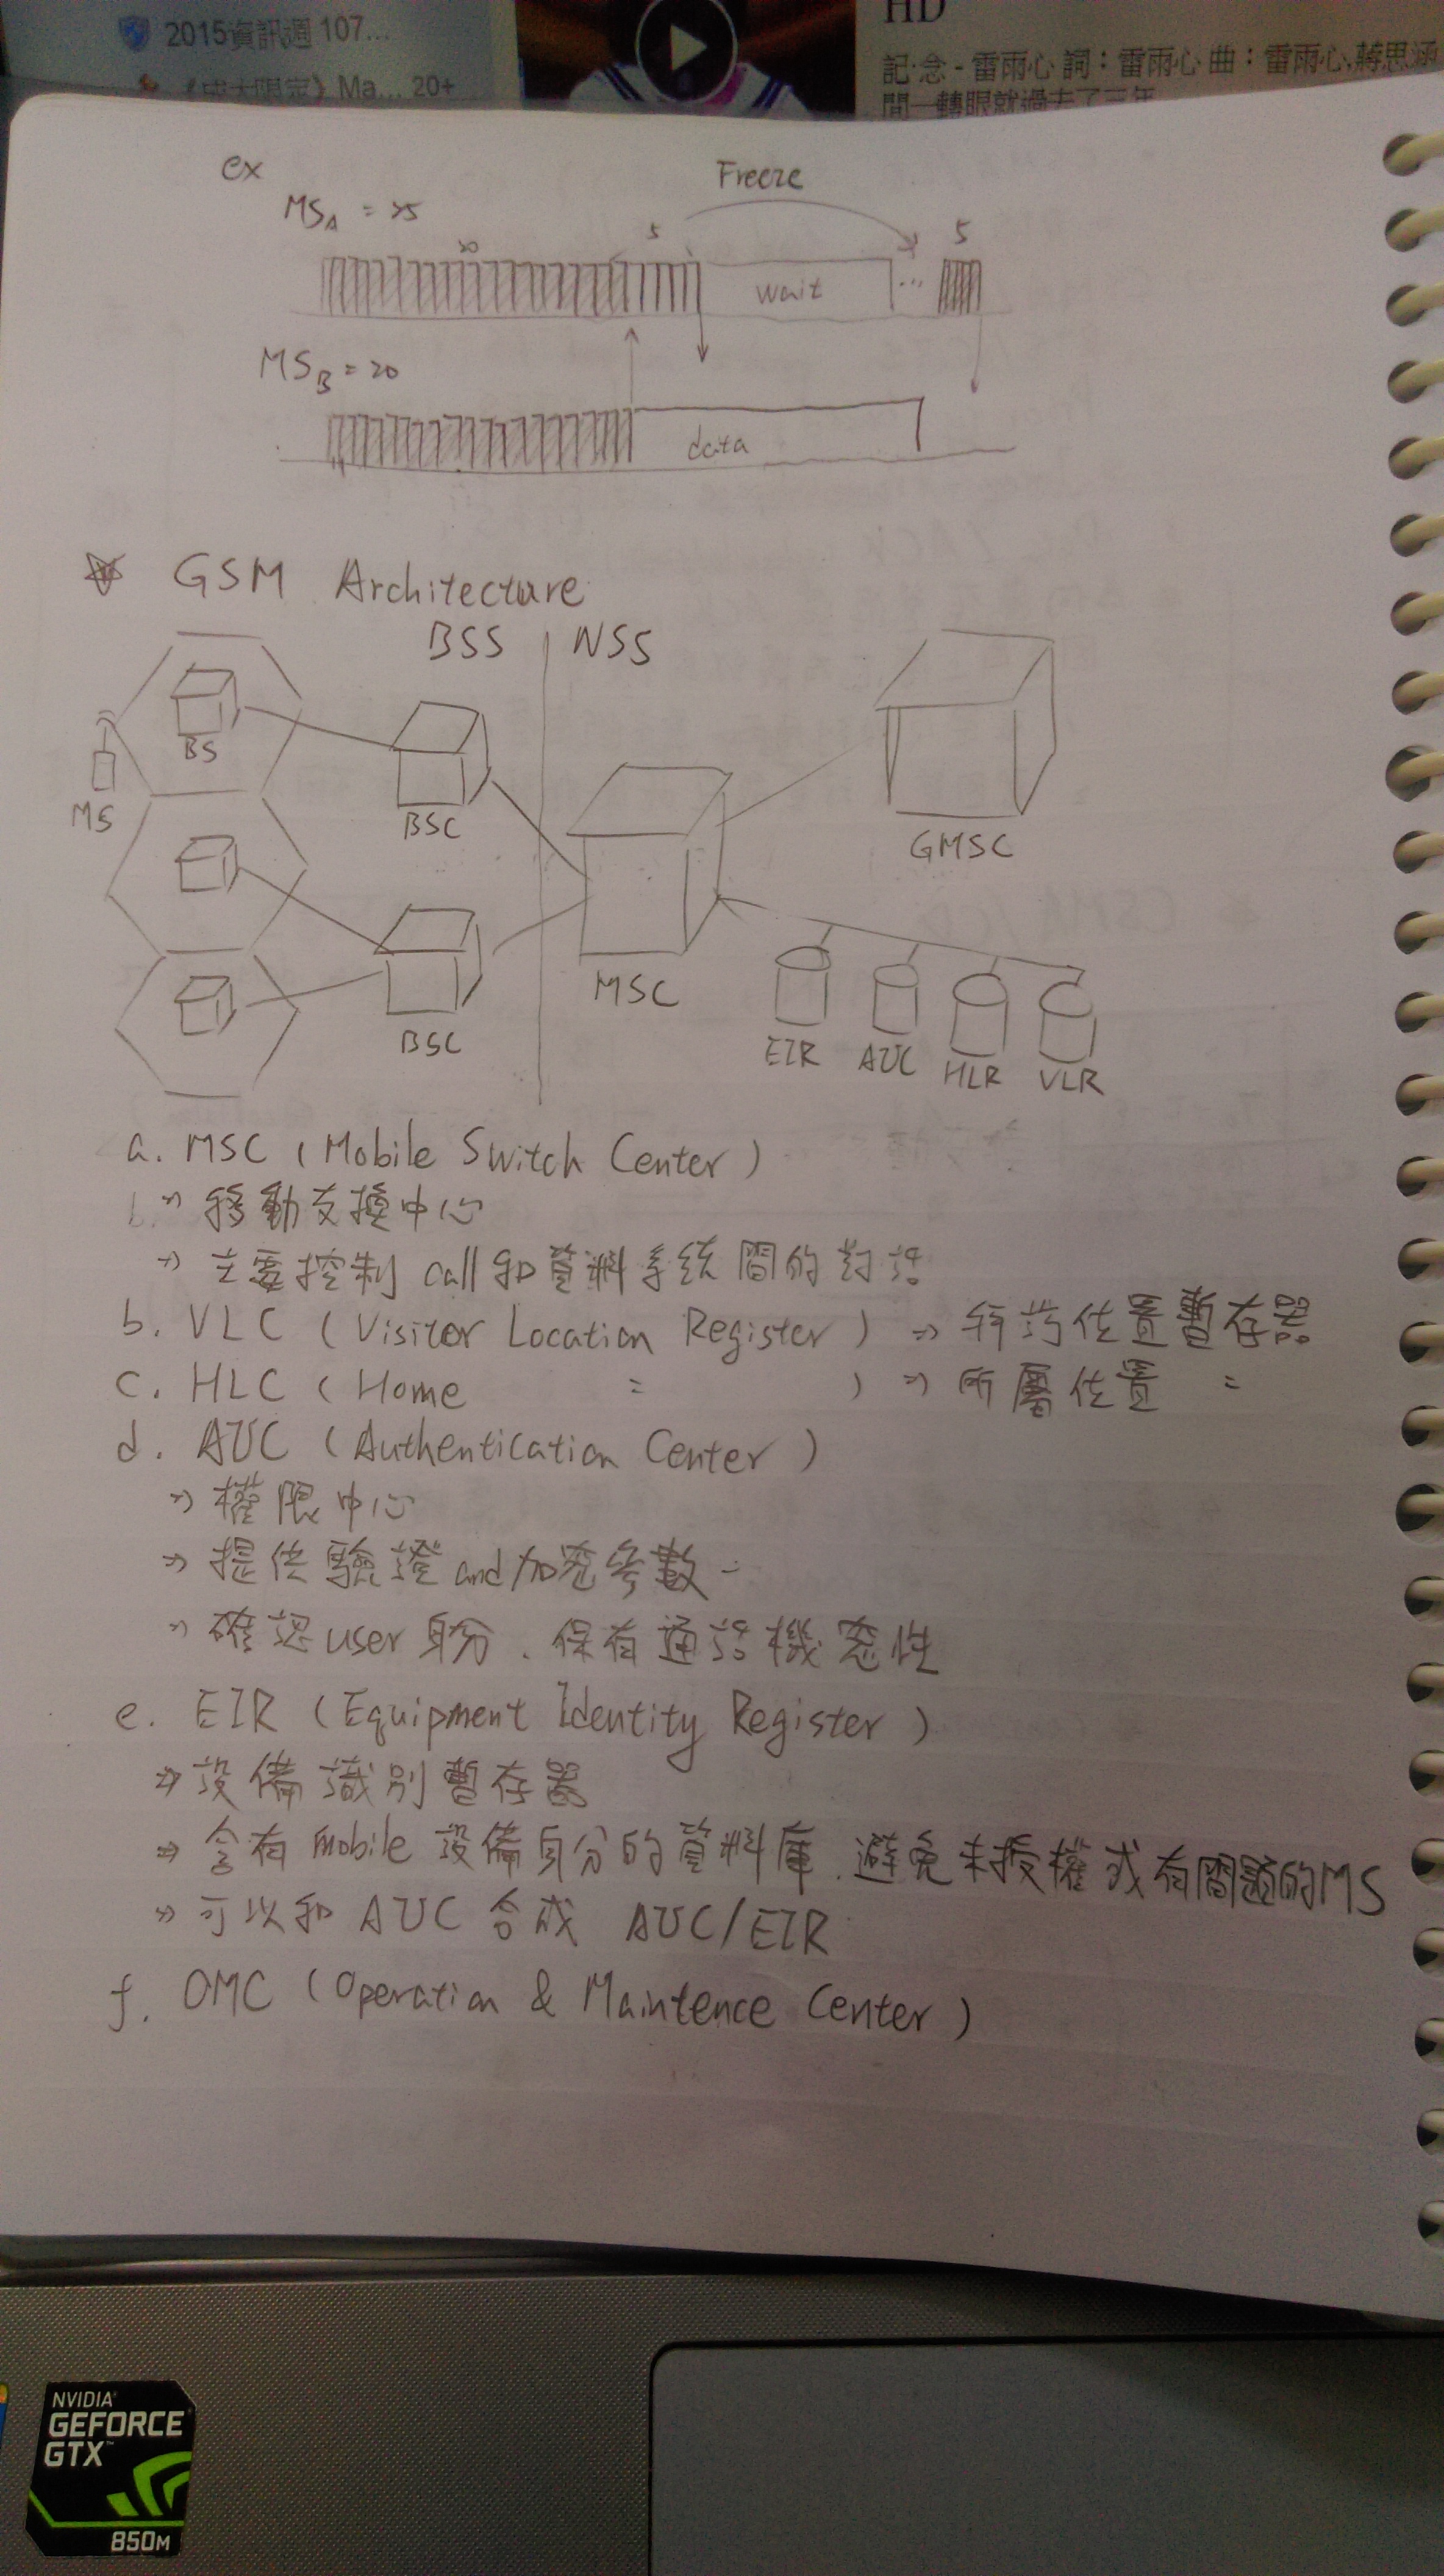 2015資訊週 107...
《成大限定》Ma... 20+
HD
記·念 - 雷雨心 詞：雷雨心 曲：雷雨心,蔣思涵
間一轉眼就過去了三年
ex
Freeze
MSA = 25
20 5 5
wait ...
MSB = 20
data
☆ GSM Architecture
BSS NSS
BS
MS
BSC
GMSC
MSC
BSC
EIR AUC HLR VLR
a. MSC (Mobile Switch Center)
⇒ 移動交換中心
⇒ 主要控制 call 和資料系統間的對話
b. VLC (Visitor Location Register) ⇒ 拜訪位置暫存器
c. HLC (Home = ) ⇒ 所屬位置 =
d. AUC (Authentication Center)
⇒ 權限中心
⇒ 提供驗證and加密參數
⇒ 確認user身分、保有通話機密性
e. EIR (Equipment Identity Register)
⇒ 設備識別暫存器
⇒ 含有mobile設備身分的資料庫、避免未授權或有問題的MS
⇒ 可以和 AUC 合成 AUC/EIR
f. OMC (Operation & Maintence Center)
NVIDIA
GEFORCE
GTX
850M